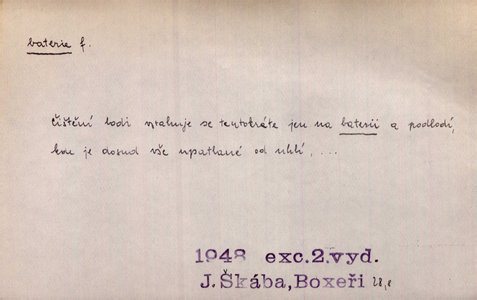 baterie f.
čištění lodi vztahuje se tentokráte jen na baterii a podlodí,
kde je dosud vše upatlané od uhlí, ...
1948 exc.2.vyd.
J. Škába, Boxeři 28,8